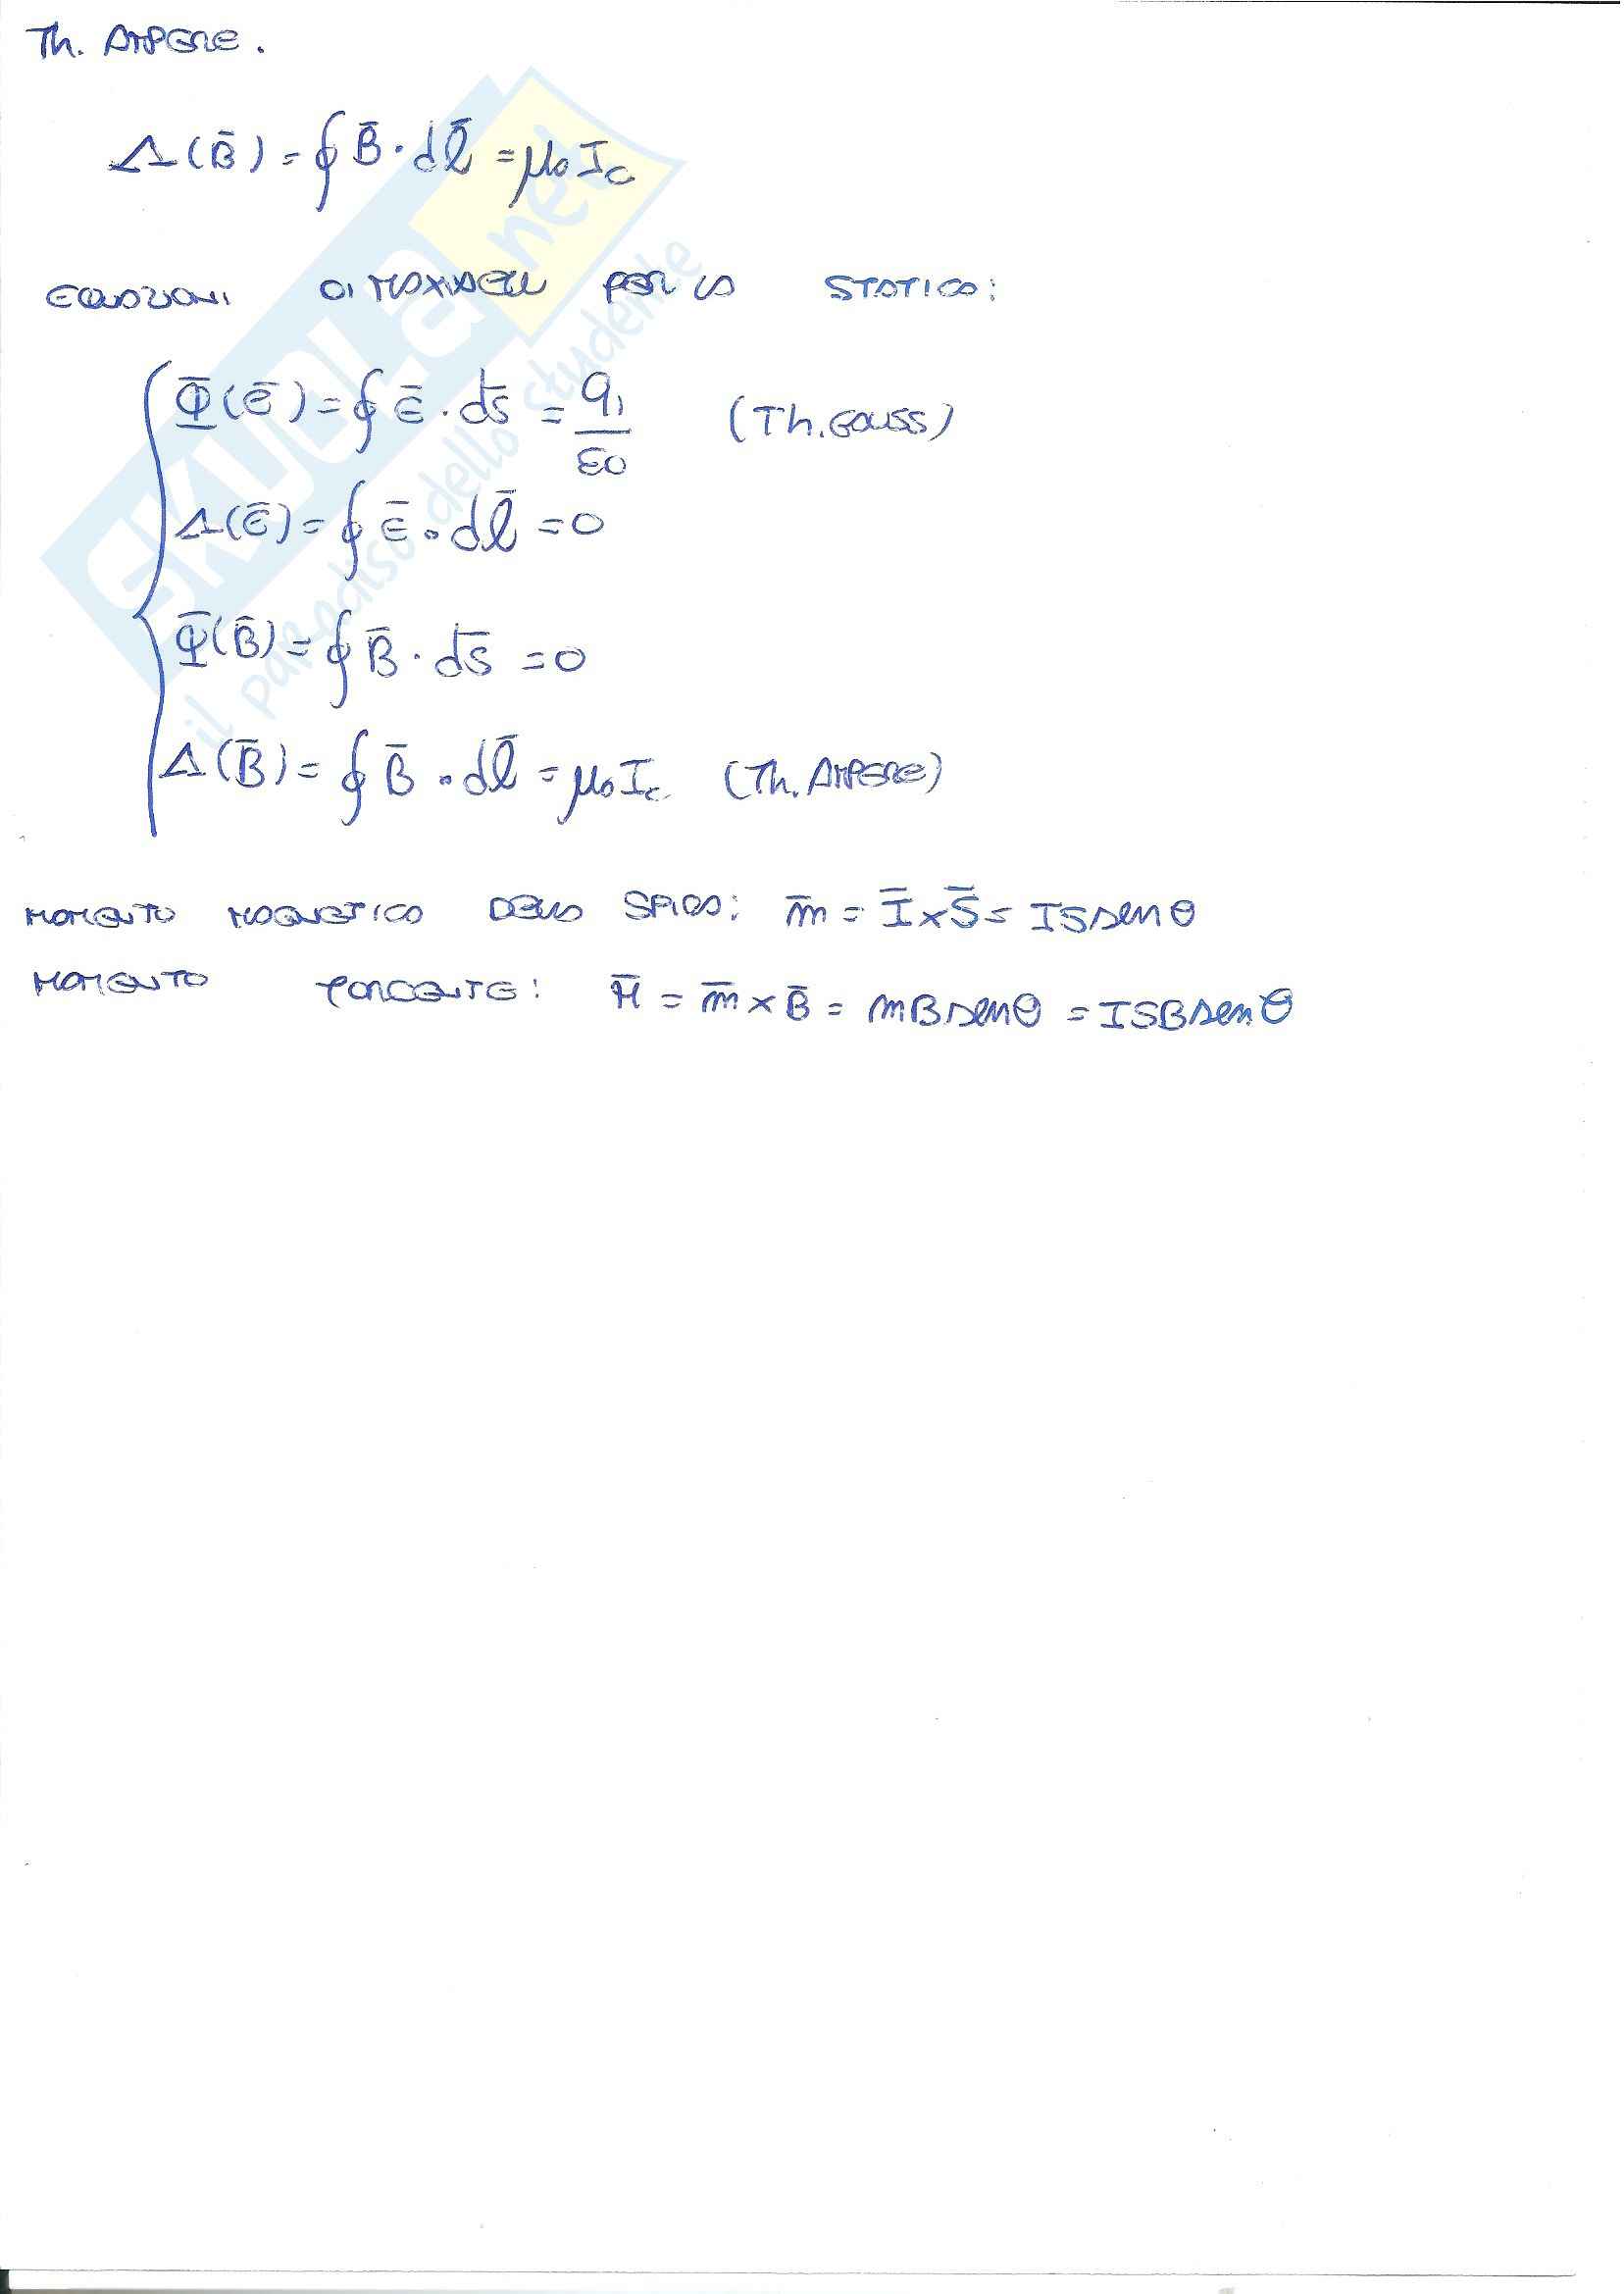 Th. AMPERE.
Λ(B̄) = ∮ B̄ · dl̄ = μ₀ I_c
EQUAZIONI DI MAXWELL PER LA STATICA:
Φ(Ē) = ∮ Ē · ds̄ = qᵢ/ε₀ (Th. GAUSS)
Λ(Ē) = ∮ Ē · dl̄ = 0
Φ(B̄) = ∮ B̄ · ds̄ = 0
Λ(B̄) = ∮ B̄ · dl̄ = μ₀ I_c (Th. AMPERE)
MOMENTO MAGNETICO DELLA SPIRA: m̄ = Ī × S̄ = IS sen θ
MOMENTO TORCENTE: M̄ = m̄ × B̄ = mB sen θ = ISB sen θ
SKUOLA.net
il paradiso dello studente